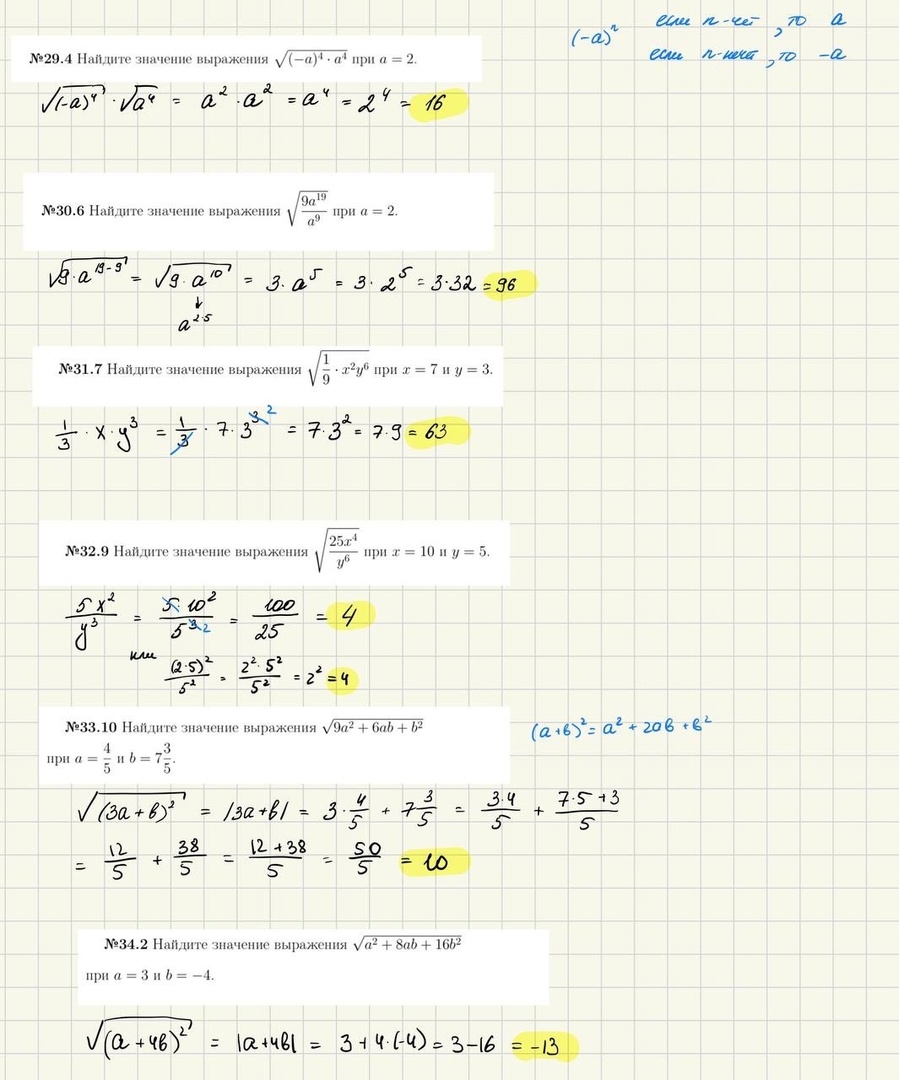 (-a)ⁿ если n-чет, то a
если n-нечет, то -a
№29.4 Найдите значение выражения √((−a)⁴ · a⁴) при a = 2.
√((-a)⁴) · √(a⁴) = a² · a² = a⁴ = 2⁴ = 16
№30.6 Найдите значение выражения √(9a¹⁹/a⁹) при a = 2.
√(9·a¹⁹⁻⁹) = √(9·a¹⁰) = 3·a⁵ = 3·2⁵ = 3·32 = 96
↓
a²·⁵
№31.7 Найдите значение выражения √(1/9 · x²y⁶) при x = 7 и y = 3.
1/3 · x · y³ = 1/3 · 7 · 3³ ² = 7·3² = 7·9 = 63
№32.9 Найдите значение выражения √(25x⁴/y⁶) при x = 10 и y = 5.
5x²/y³ = 5·10²/5³ ² = 100/25 = 4
или
(2·5)²/5² = 2²·5²/5² = 2² = 4
№33.10 Найдите значение выражения √(9a² + 6ab + b²)
при a = 4/5 и b = 7 3/5.
(a+b)² = a² + 2ab + b²
√((3a+b)²) = |3a+b| = 3 · 4/5 + 7 3/5 = 3·4/5 + (7·5+3)/5
= 12/5 + 38/5 = (12+38)/5 = 50/5 = 10
№34.2 Найдите значение выражения √(a² + 8ab + 16b²)
при a = 3 и b = −4.
√((a+4b)²) = |a+4b| = 3+4·(-4) = 3-16 = -13